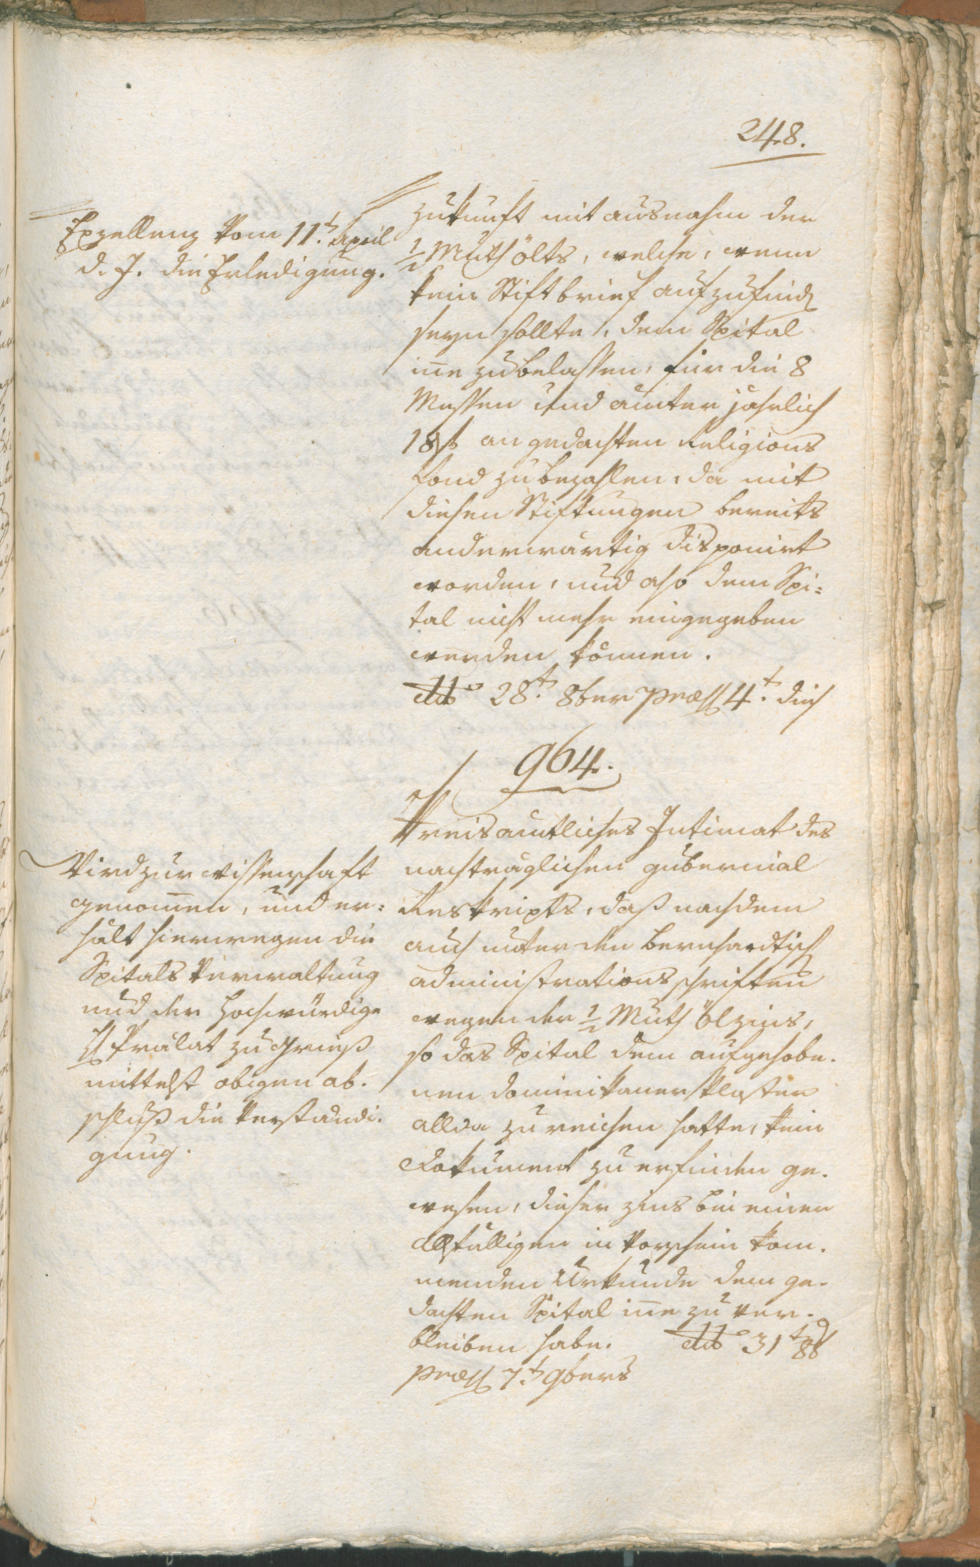 248.
Exzellenz vom 11.t April
d. J. die Erledigung.
zukunft mit ausnahm der
1/2 Muth ölts, welche, wenn
kein Stiftbrief aufzufind
seyn sollte, dem Spital
zubelassen, für die 8
Messen und ämter jährlich
18 f an gedachten Religions
fond zu bezahlen, da mit
diesen Stiftungen bereits
anderwärtig disponirt
worden, und also dem Spi=
tal nicht mehr eingegeben
werden können.
dtto 28.t 8ber praes 4.t dies
964.
Kreisamtliches Intimat des
nachträglichen gubernial
Reskripts, daß nachdem
auch unter den Bernhardtisch
administrations schriften
wegen der 1/2 Muth Ölzins,
so das Spital dem aufgehobe.
nen dominikanerkloster
allda zu reichen hatte, kein
Dokument zu erfinden ge.
wesen, dieser zins bei einer
allfälligen in Vorschein kom.
menden Urkunde dem ge-
dachten Spital zu ver.
bleiben habe. dtto 31t 8b
praes 7.t 9bers
Wird zur wissenschaft
genommen, und er=
hält hierwegen die
Spitals Verwaltung
und der hochwürdige
H Prälat zu Gries
mittelst obigen ab.
schluß die Verständi.
gung.